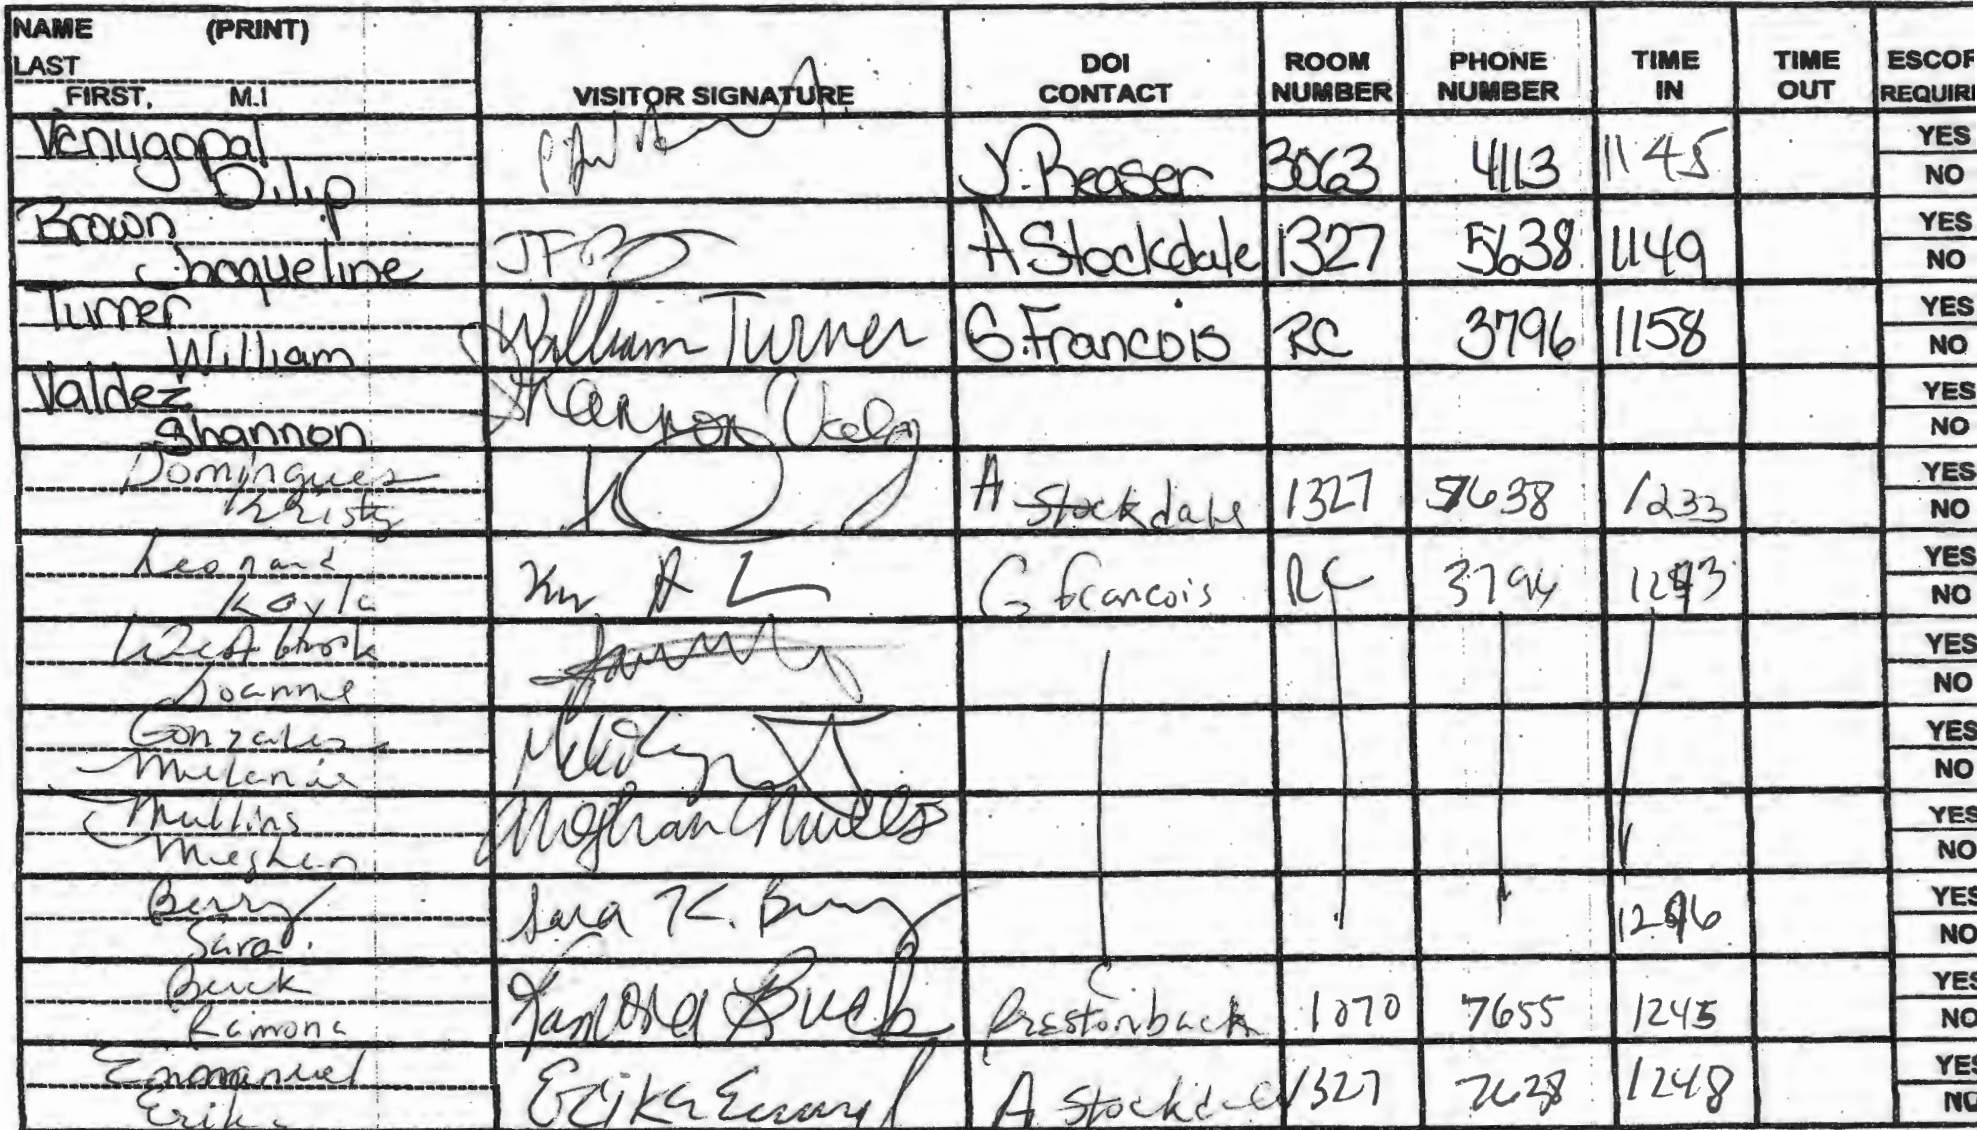 NAME (PRINT)
LAST
FIRST, M.I
VISITOR SIGNATURE
DOI CONTACT
ROOM NUMBER
PHONE NUMBER
TIME IN
TIME OUT
ESCOR
REQUIRI
Venugopal
Dilip
J. Beaser 3063 4113 1145 YES
NO
Brown
Jacqueline
JFB
A Stockdale 1327 5638 1149 YES
NO
Turner
William
William Turner G. Francois RC 3796 1158 YES
NO
Valdez
Shannon
Shannon YES
NO
Domingues
Kristy
A Stockdale 1327 5638 1233 YES
NO
Leonard
Kayla
G Francois RC 3796 1243 YES
NO
Westbrook
Joanne
YES
NO
Gonzales
Melanie
YES
NO
Mullins
Meghan
Meghan Mullins YES
NO
Berry
Sara
Sara K. Berry 1246 YES
NO
Buck
Ramona
Ramona Buck C Prestonback 1070 7655 1245 YES
NO
Emmanuel
Erika
Erika Emmanuel A Stockdale 1327 1248 YES
NO